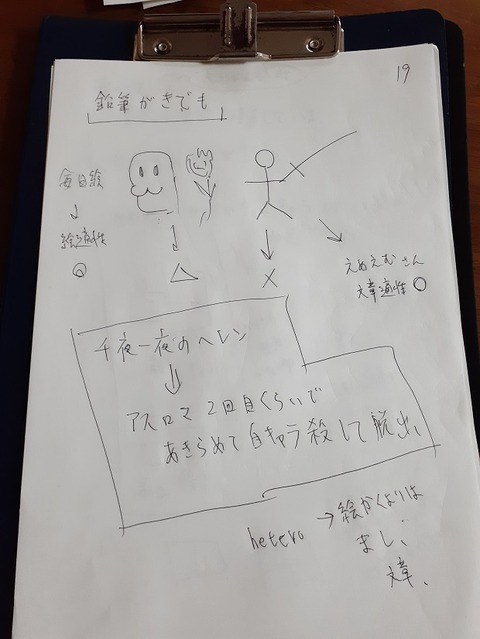 19
鉛筆がきでも
毎日絵
↓
絵適性
◎
↓
△
↓
×
↘
えぬえむさん
文章適性○
千夜一夜のヘレン
⇓
アスロマ 2回目くらいで
あきらめて自キャラ殺して脱出、
hetero → 絵かくよりは
まし、
文章、